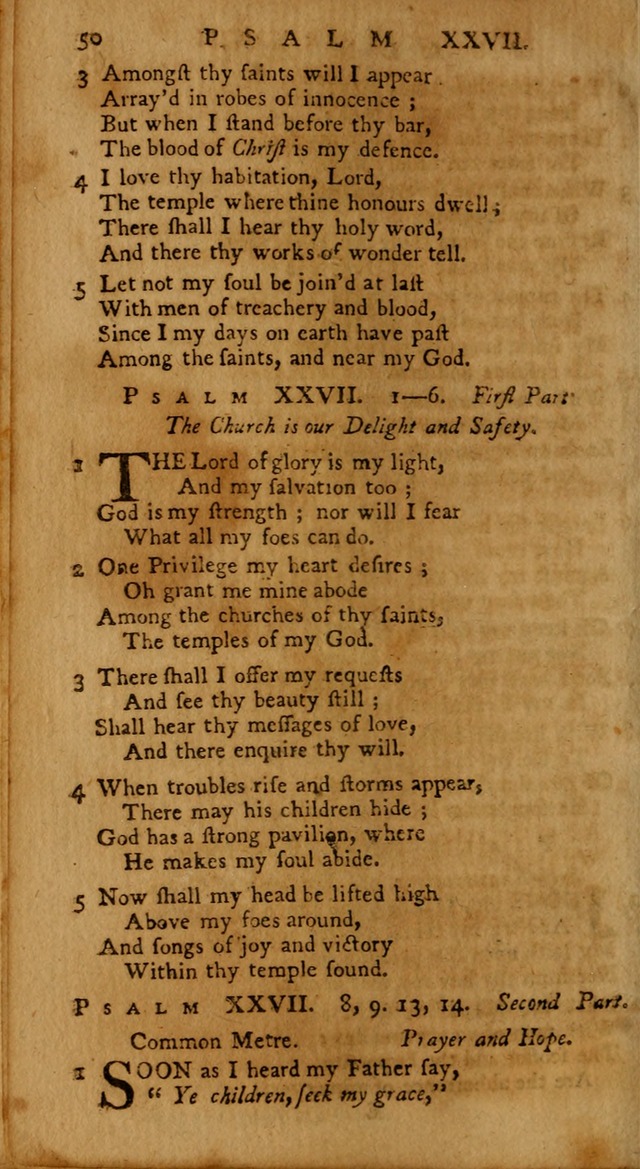 50 PSALM XXVII.
3 Amongſt thy ſaints will I appear
Array'd in robes of innocence ;
But when I ſtand before thy bar,
The blood of Chriſt is my defence.
4 I love thy habitation, Lord,
The temple where thine honours dwell ;
There ſhall I hear thy holy word,
And there thy works of wonder tell.
5 Let not my ſoul be join'd at laſt
With men of treachery and blood,
Since I my days on earth have paſt
Among the ſaints, and near my God.
PSALM XXVII. 1—6. Firſt Part
The Church is our Delight and Safety.
1 THE Lord of glory is my light,
And my ſalvation too ;
God is my ſtrength ; nor will I fear
What all my foes can do.
2 One Privilege my heart deſires ;
Oh grant me mine abode
Among the churches of thy ſaints,
The temples of my God.
3 There ſhall I offer my requeſts
And ſee thy beauty ſtill ;
Shall hear thy meſſages of love,
And there enquire thy will.
4 When troubles riſe and ſtorms appear,
There may his children hide ;
God has a ſtrong pavilion, where
He makes my ſoul abide.
5 Now ſhall my head be lifted high
Above my foes around,
And ſongs of joy and victory
Within thy temple ſound.
PSALM XXVII. 8, 9. 13, 14. Second Part.
Common Metre. Prayer and Hope.
1 SOON as I heard my Father ſay,
“ Ye children, ſeek my grace,”